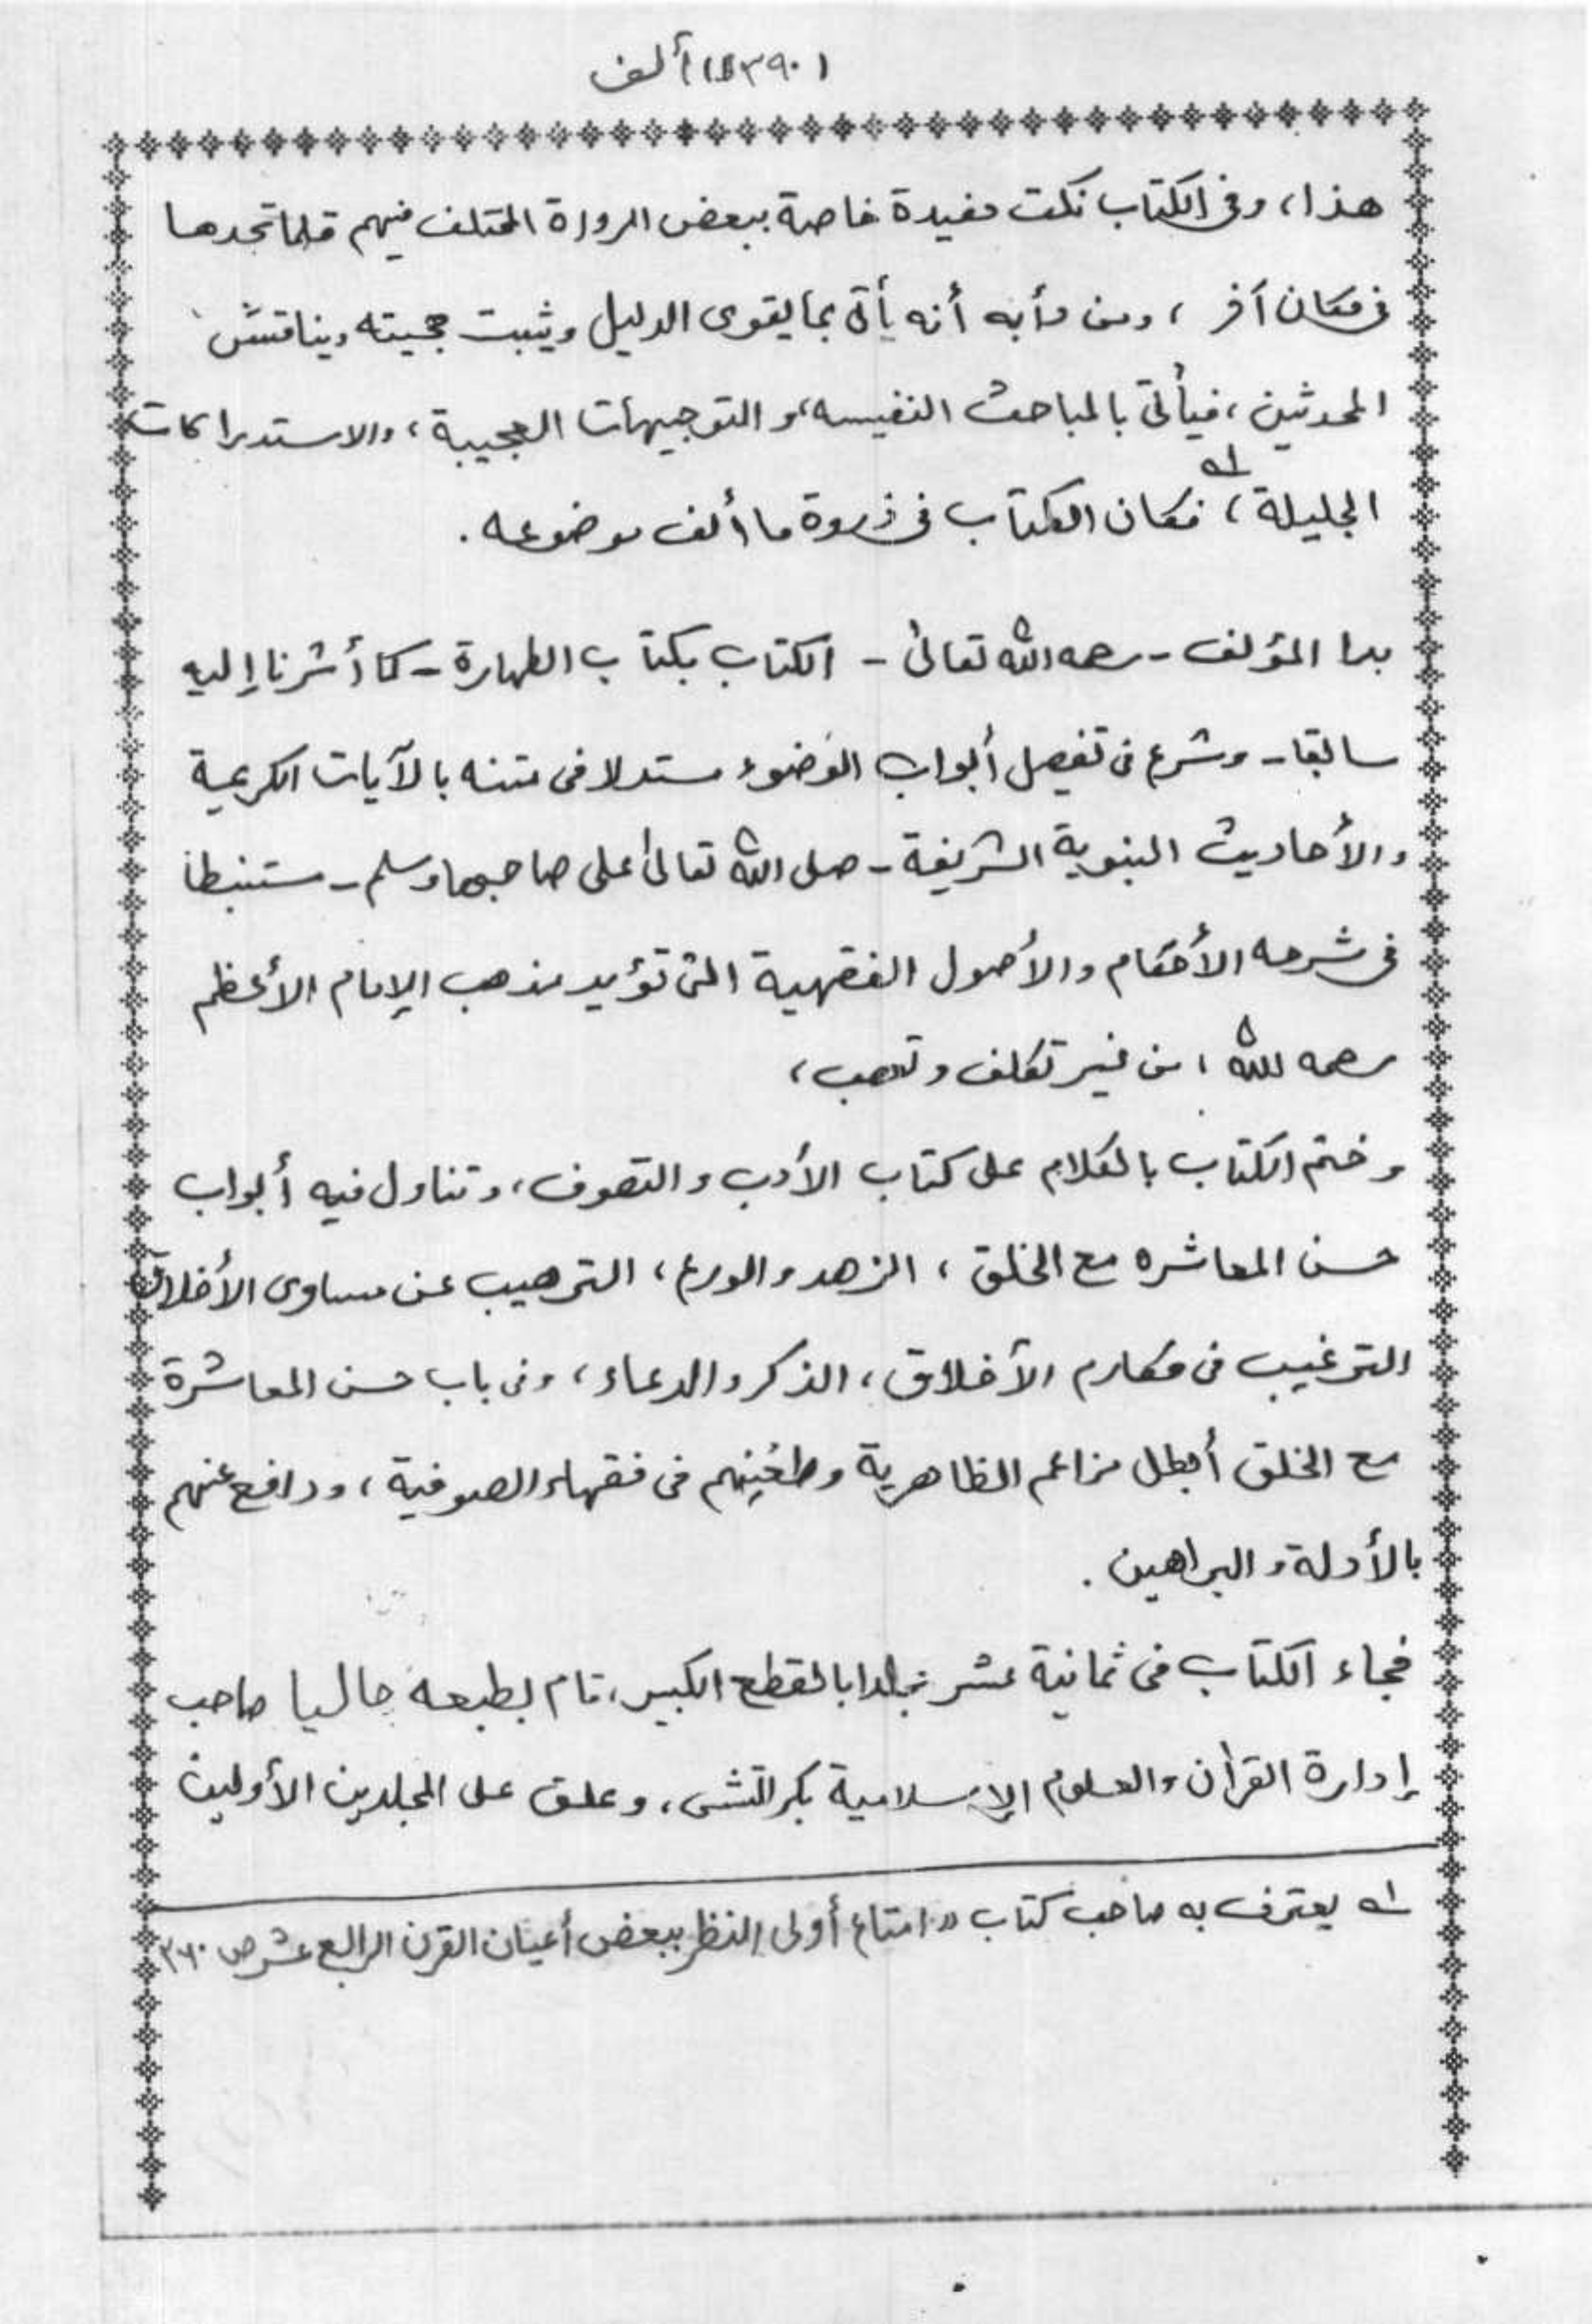 (٣٩٠) ألف
هذا، وفى الكتاب نكت مفيدة خاصة ببعض الرواة المختلف فيهم قلما تجدها
فى مكان آخر ، ومن دأبه أنه يأتى بما يقوى الدليل ويثبت حجيته ويناقش
المحدثين، فيأتى بالمباحث النفيسه، والتوجيهات العجيبة، والاستدراكات
الجليلة،١ فكان الكتاب فى ذروة ما ألف موضوعه.
بدا المؤلف - رحمه الله تعالى - الكتاب بكتاب الطهارة - كما أشرنا إليه
سابقا - وشرع فى تفصل أبواب الوضوء مستدلا فى متنه بالآيات الكريمية
والأحاديث النبوية الشريفة - صلى الله تعالى على صاحبها وسلم - مستنبطا
فى شرحه الأحكام والأصول الفقهية التى تؤيد مذهب الإمام الأعظم
رحمه الله ، من غير تكلف وتعصب،
وختم الكتاب بالكلام على كتاب الأدب والتصوف، وتناول فيه أبواب
حسن المعاشره مع الخلق ، الزهد والورع، الترهيب عن مساوى الأخلاق
الترغيب فى مكارم الأخلاق، الذكر والدعاء، وفى باب حسن المعاشرة
مع الخلق أبطل مزاعم الظاهرية وطعنهم فى فقهاء الصوفية، ودافع عنهم
بالأدلة والبراهين.
فجاء الكتاب فى ثمانية عشر مجلدا بالقطع الكبير، قام بطبعه حاليا صاحب
إدارة القرأن والعلوم الإسلامية بكراتشى، وعلق على المجلدين الأولين
١ـه يعترف به صاحب كتاب " امتاع أولى النظر ببعض أعيان القرن الرابع عشر ص ٣٦٠